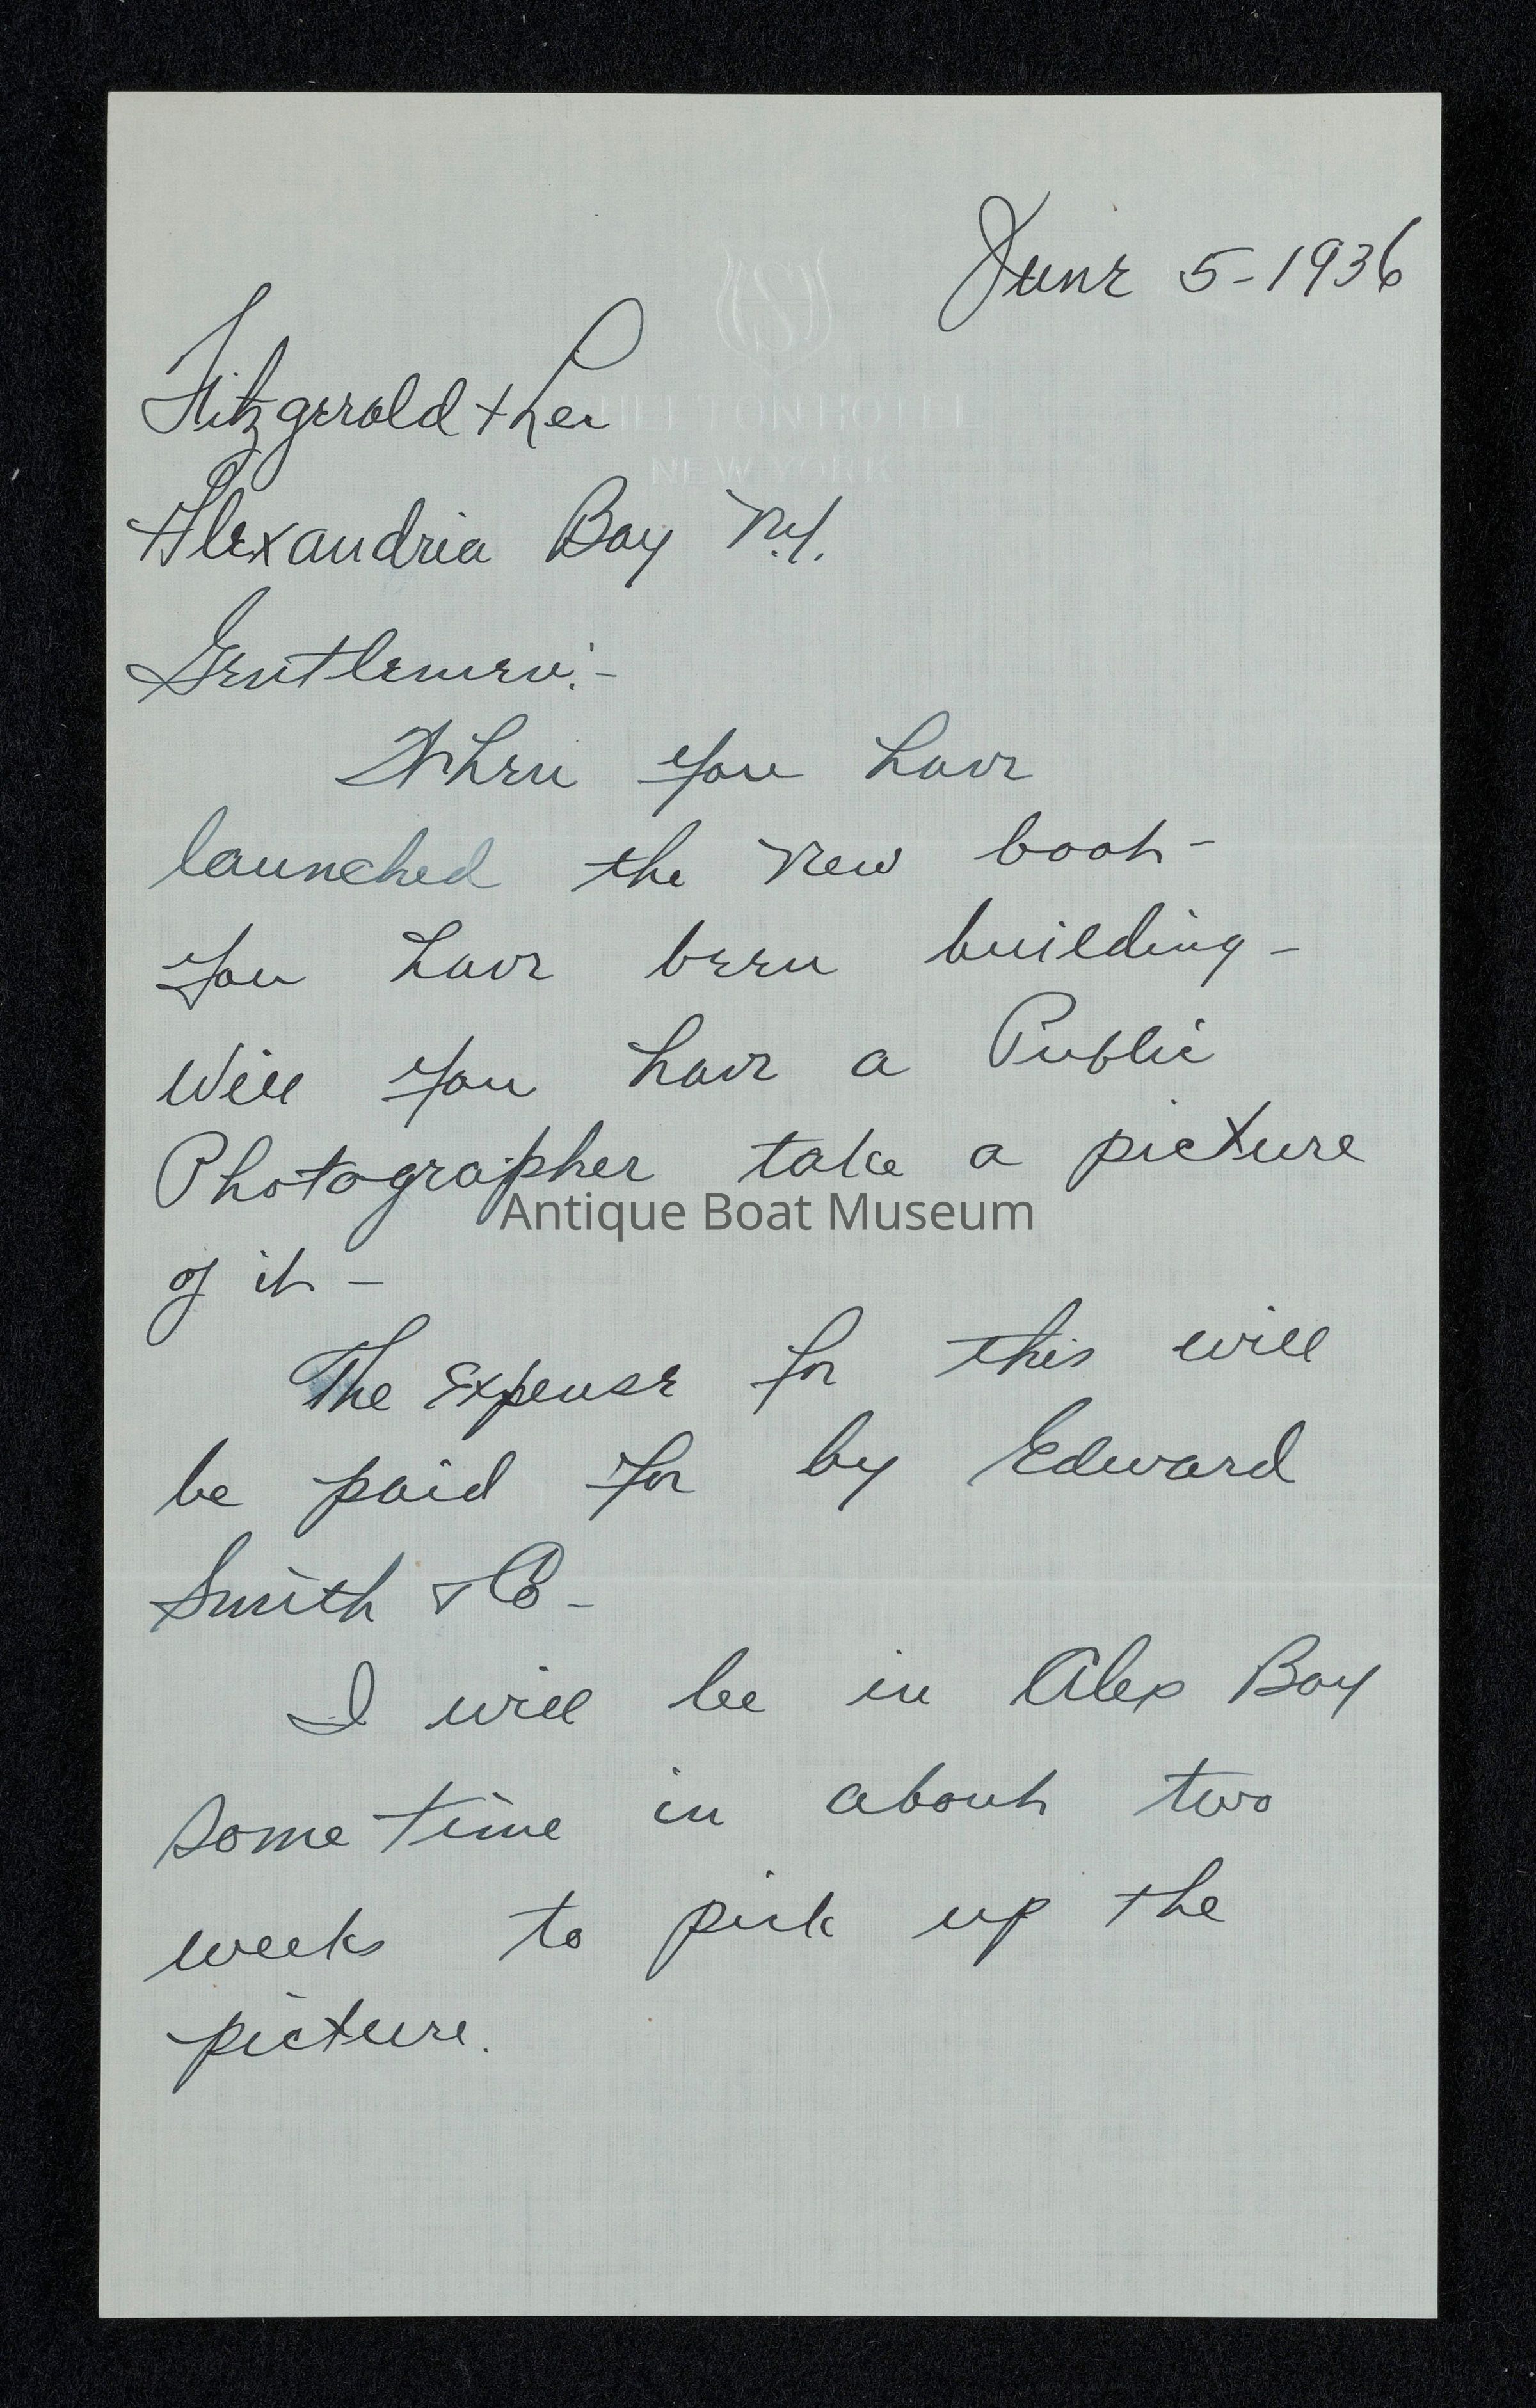 June 5-1936
Fitzgerald + Lee
NEW YORK
Alexandria Bay N.Y.
Gentlemen:-
When you have
launched the New boat-
you have been building-
Will you have a Public
Photographer take a picture
Antique Boat Museum
of it -
The Expense for this will
be paid for by Edward
Smith & Co-
I will be in Alex Bay
some time in about two
weeks to pick up the
picture.